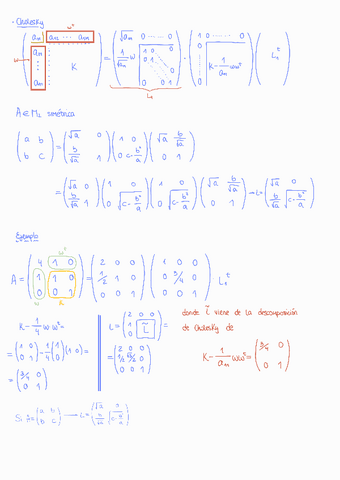 - Cholesky
( a₁₁ a₁₂ ... a₁ₙ ; w K ) = ( √a₁₁ 0 ... 0 ; 1/√a₁₁ w 1 0 ; 0 0 1 ) · ( 1 0 ... 0 ; 0 K - 1/a₁₁ wwᵗ ) L₁ᵗ
L₁
A ∈ M₂ simétrica
( a b ; b c ) = ( √a 0 ; b/√a 1 ) ( 1 0 ; 0 c - b²/a ) ( √a b/√a ; 0 1 )
= ( √a 0 ; b/√a 1 ) ( 1 0 ; 0 √(c - b²/a) ) ( 1 0 ; 0 √(c - b²/a) ) ( √a b/√a ; 0 1 ) → L = ( √a 0 ; b/√a √(c - b²/a) )
Ejemplo
wᵗ
A = ( 4 1 0 ; 1 1 0 ; 0 0 1 ) = ( 2 0 0 ; 1/2 1 0 ; 0 0 1 ) ( 1 0 0 ; 0 3/4 0 ; 0 0 1 ) L₁ᵗ
w K
K - 1/4 w wᵗ =
= ( 1 0 ; 0 1 ) - 1/4 ( 1 ; 0 ) ( 1 0 ) =
= ( 3/4 0 ; 0 1 )
L = ( 2 0 0 ; 1/2 ; 0 L̃ ) =
= ( 2 0 0 ; 1/2 √3/2 0 ; 0 0 1 )
donde L̃ viene de la descomposición
de Cholesky de
K - 1/a₁₁ wwᵗ = ( 3/4 0 ; 0 1 )
Si A = ( a b ; b c ) → L =